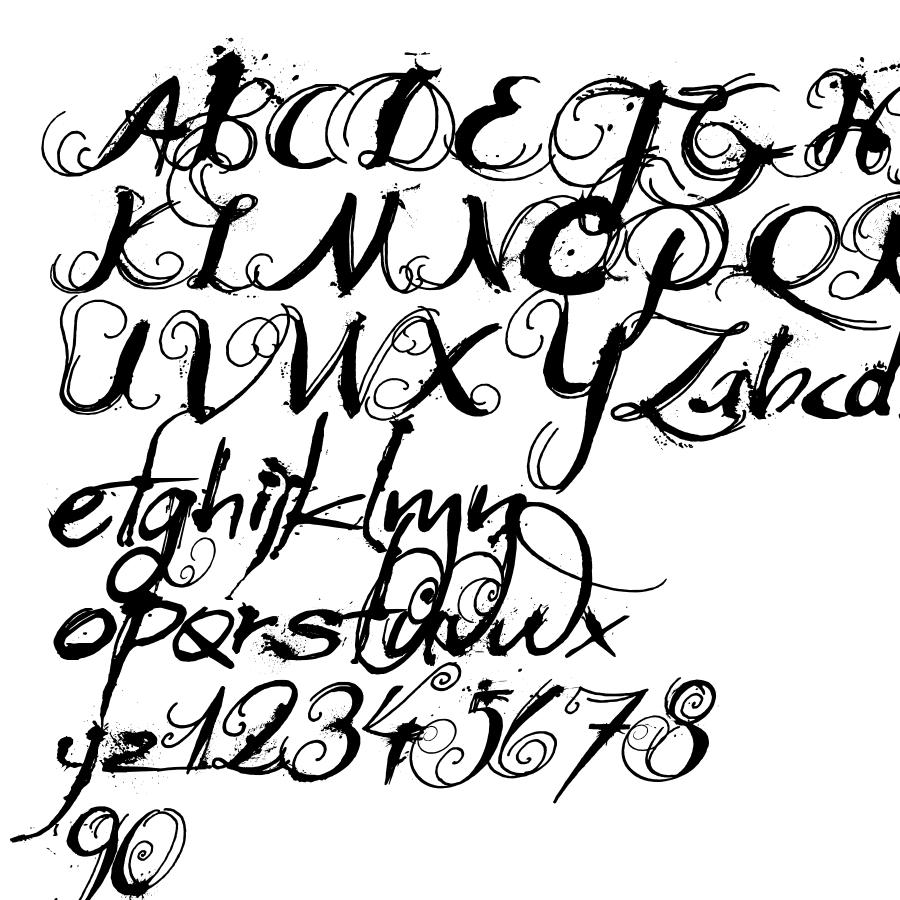 ABCDEFGH
KLMNOPQR
UVWXYZabcd
efghijklmn
opqrstuvwx
yz12345678
90